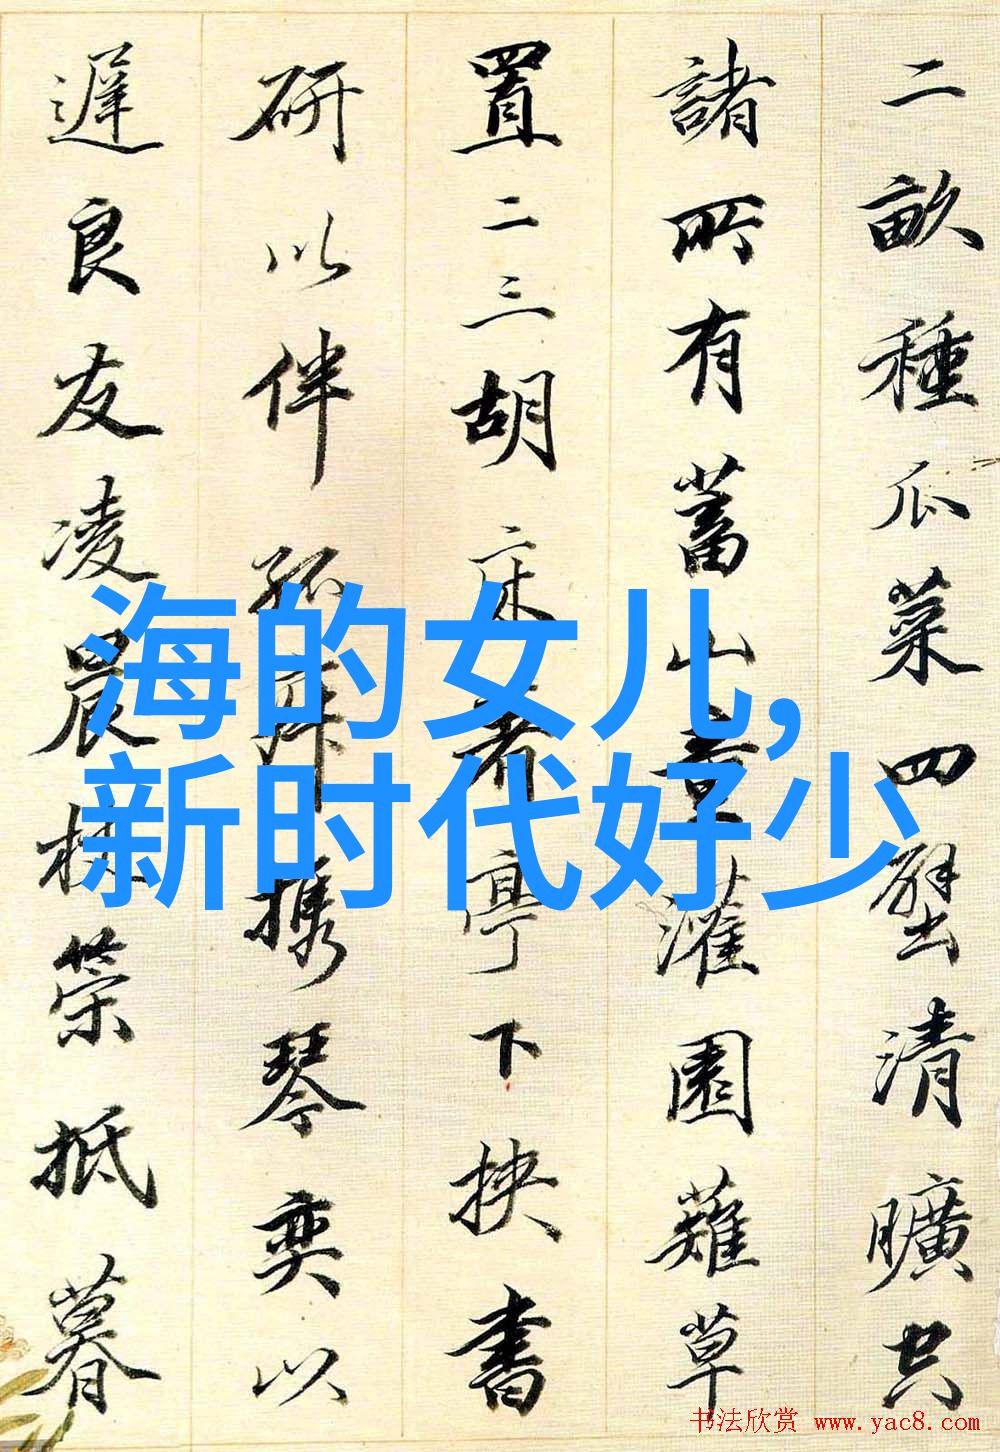 二畝種瓜菜四壁清曠空
諸所有蓄山童灌園薙草
置二三胡床着亭下挟書
研以伴孤寂携琴奕以
遲良友凌晨杖策抵暮
海的女儿,
新时代好少
书法欣赏 www.yac8.com